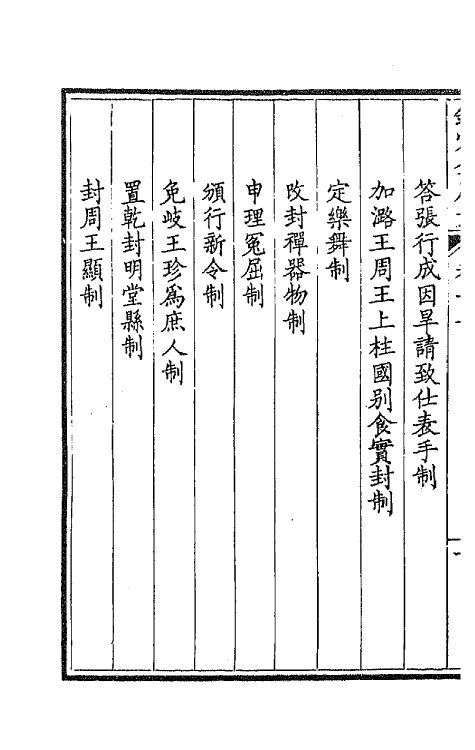 答張行成因旱請致仕表手制
加潞王周王上柱國別食實封制
定樂舞制
改封禪器物制
申理冤屈制
頒行新令制
免岐王珍為庶人制
置乾封明堂縣制
封周王顯制